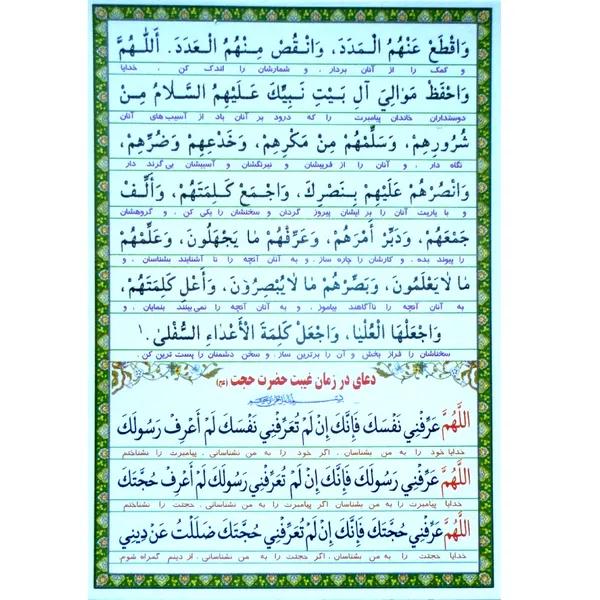 وَاقْطَعْ عَنْهُمُ الْمَدَدَ، وَانْقُصْ مِنْهُمُ الْعَدَدَ. أَللّٰهُمَّ
و کمک را از آنان بردار . و شمارشان را اندک کن . خدایا
وَاحْفَظْ مَوَالِيَ آلِ بَيْتِ نَبِيِّكَ عَلَيْهِمُ السَّلَامُ مِنْ
دوستداران خاندان پیامبرت را که درود بر آنان باد از آسیب های آنان
شُرُورِهِمْ، وَسَلِّمْهُمْ مِنْ مَكْرِهِمْ، وَخَدْعِهِمْ وَضُرِّهِمْ،
نگاه دار . و آنان را از فریبشان و نیرنگشان و آسیبشان بی گزند دار
وَانْصُرْهُمْ عَلَيْهِمْ بِنَصْرِكَ، وَاجْمَعْ كَلِمَتَهُمْ، وَأَلِّفْ
و با یاریت آنان را بر ایشان پیروز گردان و سخنشان را یکی کن . و گروهشان
جَمْعَهُمْ، وَدَبِّرْ أَمْرَهُمْ، وَعَرِّفْهُمْ مَا يَجْهَلُونَ، وَعَلِّمْهُمْ
را پیوند بده . و کارشان را چاره ساز . و به آنان آنچه را نا آشنایند بشناسان . و
مَا لَا يَعْلَمُونَ، وَبَصِّرْهُمْ مَا لَا يُبْصِرُونَ، وَأَعْلِ كَلِمَتَهُمْ،
به آنان آنچه را ناآگاهند بیاموز . و به آنان آنچه را نمی بینند بنمایان . و
وَاجْعَلْهَا الْعُلْيَا، وَاجْعَلْ كَلِمَةَ الْأَعْدَاءِ السُّفْلىٰ. ۱
سخنشان را فراز بخش و آن را برترین ساز . و سخن دشمنان را پست ترین کن .
دعای در زمان غیبت حضرت حجت (عج)
اللّٰهُمَّ عَرِّفْنِي نَفْسَكَ فَإِنَّكَ إِنْ لَمْ تُعَرِّفْنِي نَفْسَكَ لَمْ أَعْرِفْ رَسُولَكَ
خدایا خود را به من بشناسان . اگر خود را به من نشناسانی . پیامبرت را نشناختم
اللّٰهُمَّ عَرِّفْنِي رَسُولَكَ فَإِنَّكَ إِنْ لَمْ تُعَرِّفْنِي رَسُولَكَ لَمْ أَعْرِفْ حُجَّتَكَ
خدایا پیامبرت را به من بشناسان اگر پیامبرت را به من نشناسانی . حجتت را نشناختم
اللّٰهُمَّ عَرِّفْنِي حُجَّتَكَ فَإِنَّكَ إِنْ لَمْ تُعَرِّفْنِي حُجَّتَكَ ضَلَلْتُ عَنْ دِينِي
خدایا حجتت را به من بشناسان . اگر حجتت را به من نشناسانی . از دینم گمراه شوم.